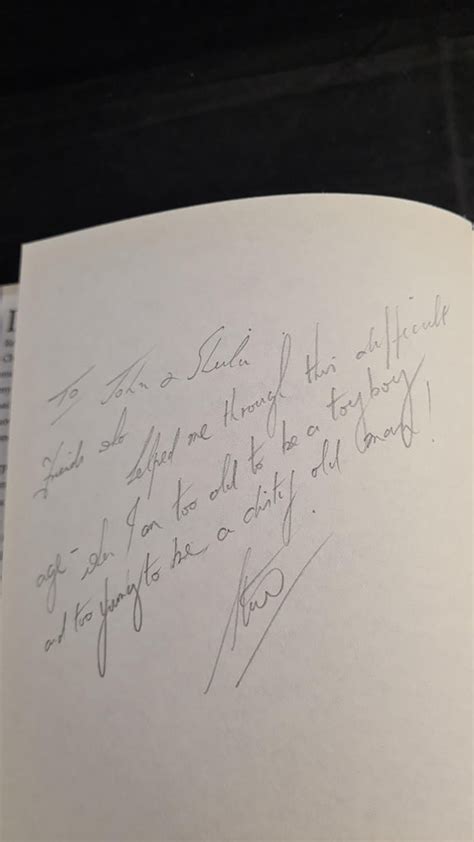 To John &
Friends who
helped me through this difficult
age – when I am too old to be a toyboy
and too young to be a dirty old man!